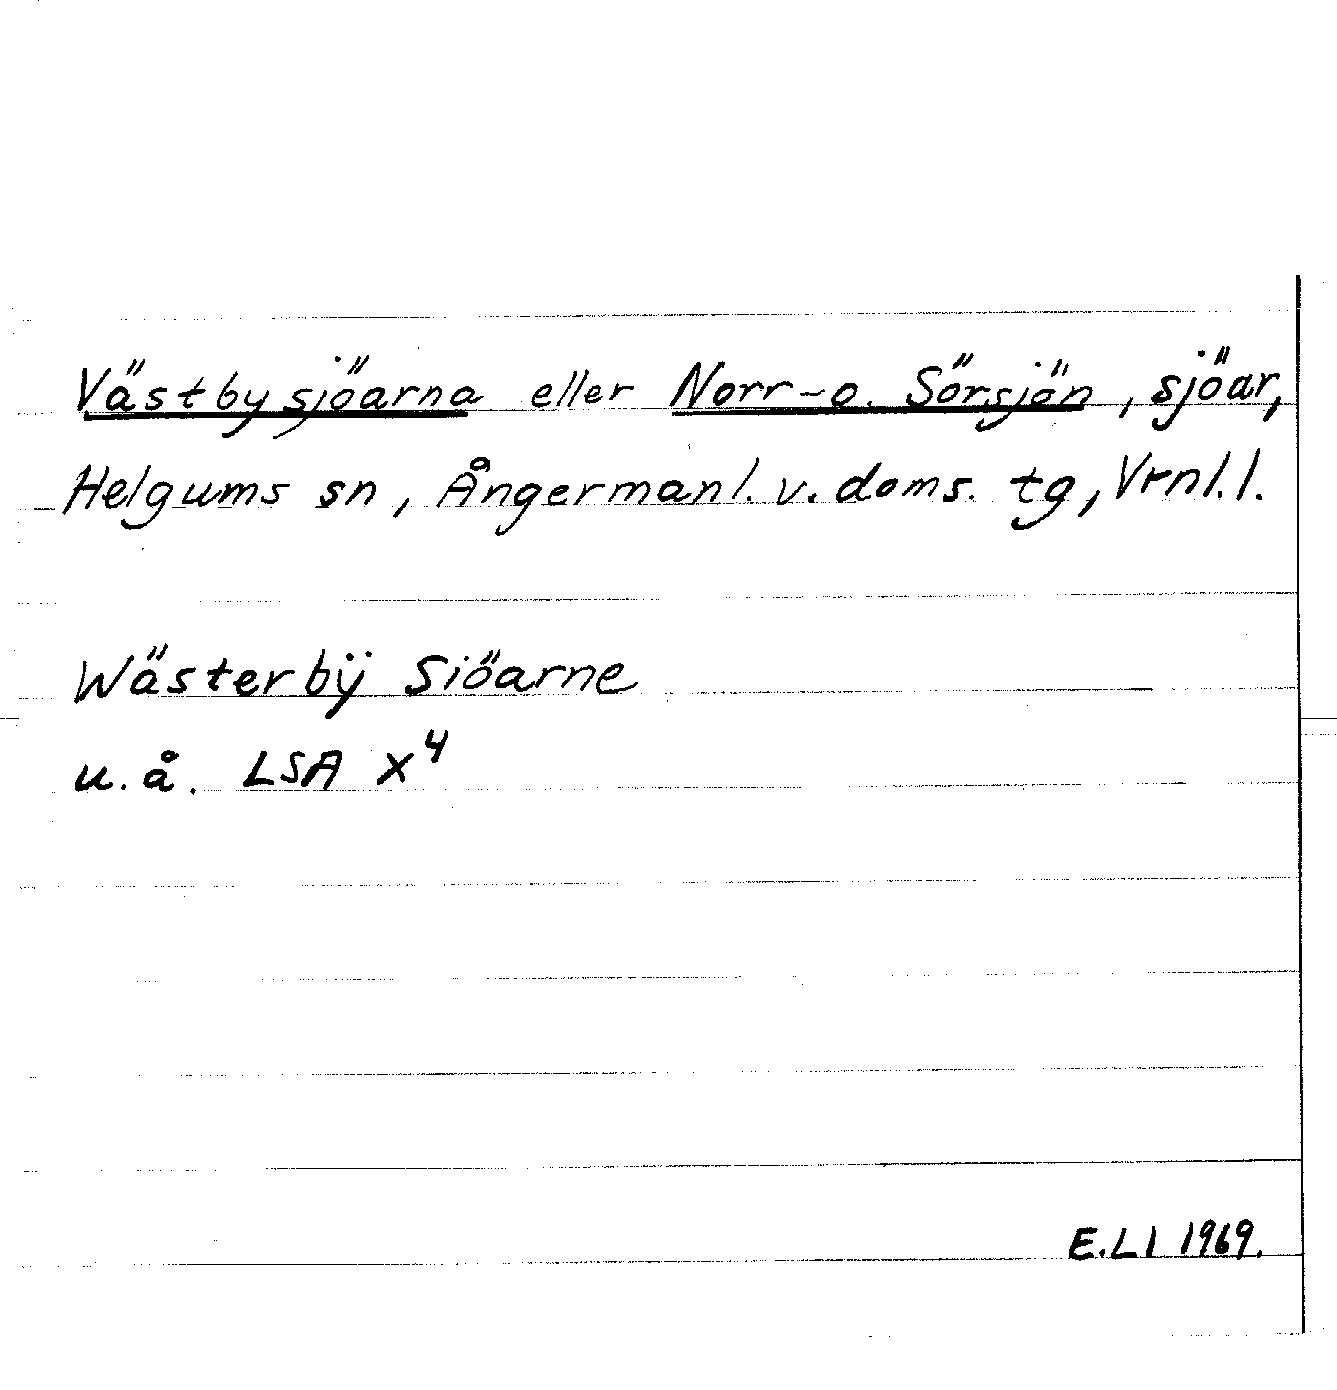 Västbysjöarna eller Norr- o. Sörsjön, sjöar,
Helgums sn, Ångermanl. v. doms. tg, Vrnl. l.
Wästerbÿ Siöarne
u. å. LSA X⁴
E. L l 1969.